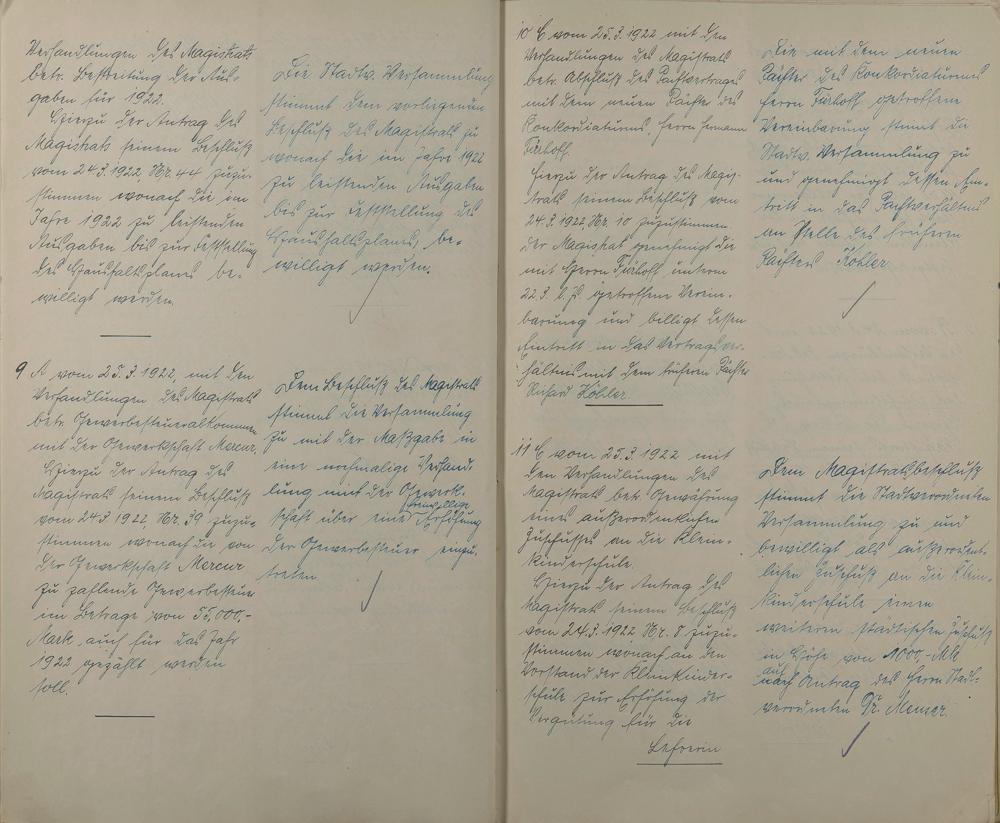 Verhandlungen des Magistrats
betr. Bestreitung der Aus-
gaben für 1922.
Hierzu der Antrag des
Magistrats seinem Beschluß
vom 24.3.1922 Nr. 44 zuzu-
stimmen wonach die im
Jahre 1922 zu leistenden
Ausgaben bis zur Feststellung
des Haushaltsplanes be-
willigt werden.
Die Stadtv. Versammlung
stimmt dem vorliegenden
Beschluß des Magistrats zu
wonach die im Jahre 1922
zu leistenden Ausgaben
bis zur Feststellung des
Haushaltsplanes, be-
willigt werden.
9 A vom 25.3.1922, mit den
Verhandlungen des Magistrats
betr. Gewerbesteuerabkommen
mit der Gewerkschaft Mercur.
Hierzu der Antrag des
Magistrats seinem Beschluß
vom 24.3.1922, Nr. 39 zuzu-
stimmen wonach die von
der Gewerkschaft Mercur
zu zahlende Gewerbesteuer
im Betrage von 55,000,-
Mark auch für das Jahr
1922 gezahlt werden
soll.
Dem Beschluß des Magistrats
stimmt die Versammlung
zu mit der Maßgabe in
eine nochmalige Verhand-
lung mit der Gewerk-
schaft über eine freiwillige Erhöhung
der Gewerbesteuer einzu-
treten
10 C vom 25.3.1922 mit den
Verhandlungen des Magistrats
betr. Abschluß des Pachtvertrages
mit dem neuen Pächter des
Konkordiaturms, Herrn Hermann
Fürhoff.
Hierzu der Antrag des Magis-
trats seinem Beschluß vom
24.3.1922, Nr. 10 zuzustimmen
der Magistrat genehmigt die
mit Herrn Fürhoff unterm
22.3. d.Js. getroffene Verein-
barung und billigt dessen
Eintritt in das Vertragsver-
hältnis mit dem früheren Pächter
Richard Köhler.
Die mit dem neuen
Pächter des Konkordiaturms
Herrn Fürhoff getroffene
Vereinbarung stimmt die
Stadtv. Versammlung zu
und genehmigt dessen Ein-
tritt in das Pachtverhältnis
an Stelle des früheren
Pächters Köhler
11 C vom 25.3.1922 mit
den Verhandlungen des
Magistrats betr. Gewährung
eines außerordentlichen
Zuschusses an die Klein-
kinderschule.
Hierzu der Antrag des
Magistrats seinem Beschluß
vom 24.3.1922 Nr. 8 zuzu-
stimmen wonach an den
Vorstand der Kleinkinder-
schule zur Erhöhung der
Vergütung für die
Lehrerin
Dem Magistratsbeschluß
stimmt die Stadtverordneten
Versammlung zu und
bewilligt als außerordent-
lichen Zuschuß an die Klein-
kinderschule einen
weiteren städtischen Zuschuß
in Höhe von 1000,- Mk
auf Antrag des Herrn Stadt-
verordneten Dr. Menser.